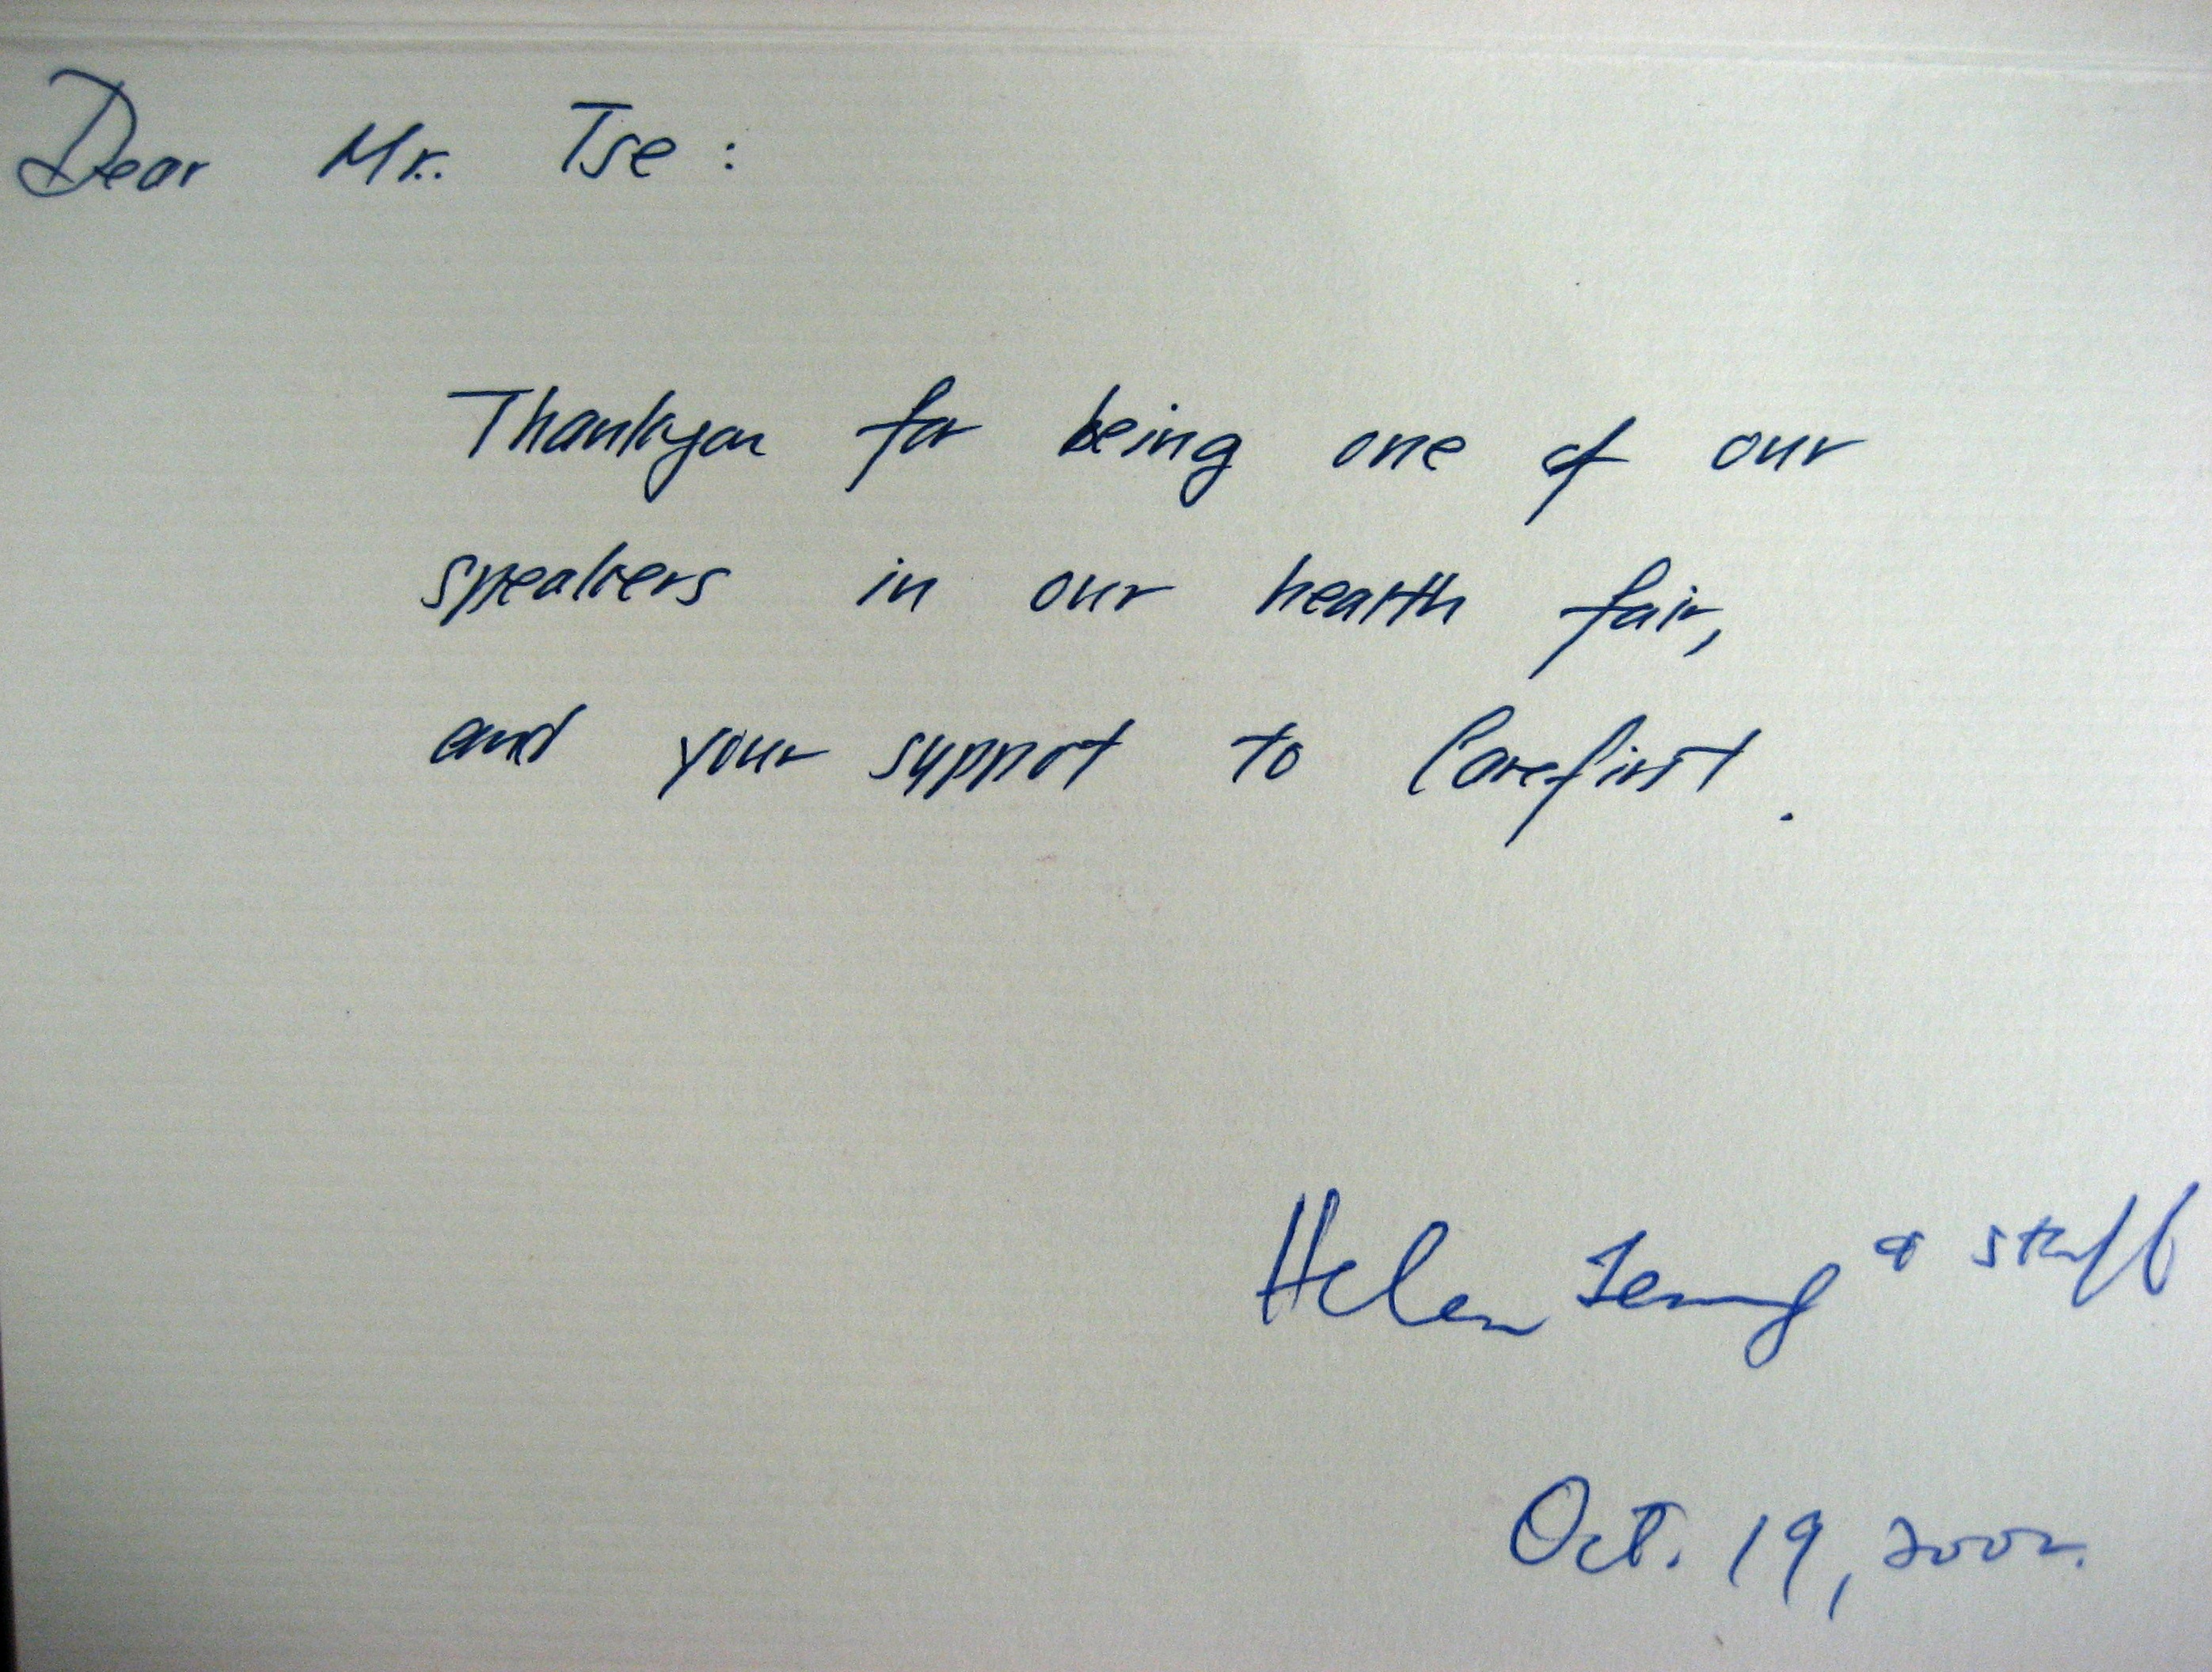 Dear Mr. Tse:
Thankyou for being one of our
speakers in our health fair,
and your support to Carefirst.
Helen & staff
Oct. 19, 2002.